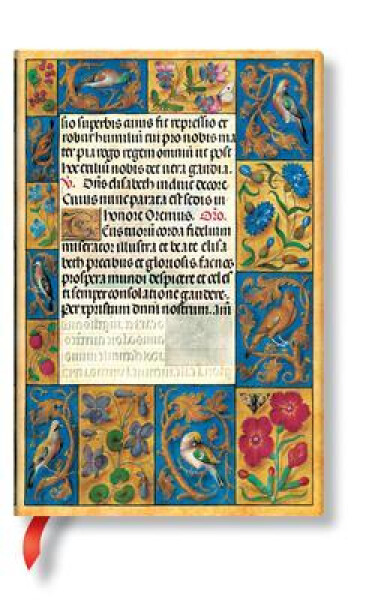 sio superbis cuius fit repressio et
robur humiliū cui pro nobis ma
ter pia rogo regem omniū ut post
hoc exiliū nobis det vera gaudia.
V. Dn̄s elisabeth induit decore
Cuius nunc parata est sedis in
honore Oremus. Oro.
tuorum corda fidelium
miserator illustra et beate elisa
beth precibus et gloriosis fac nos
prospera mundi despicere et celes
ti semper consolatione gaudere.
Per xp̄istum dnm̄ nostrum. am̄